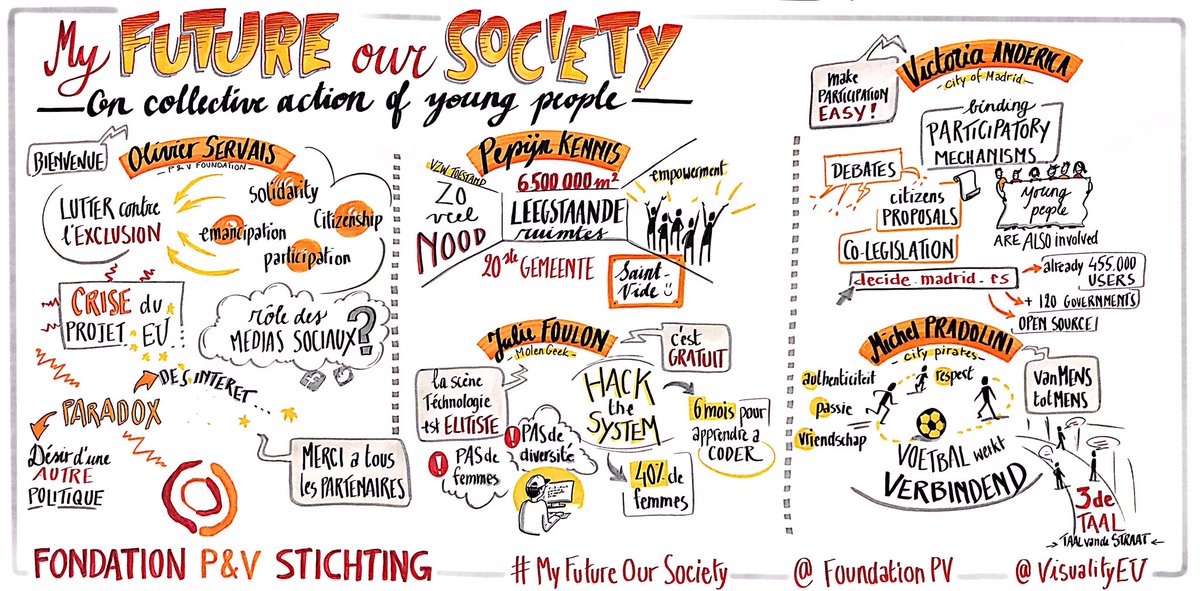 My FUTURE our SOCIETY
On collective action of young people
BIENVENUE
Olivier SERVAIS
P&V FOUNDATION
LUTTER contre
l'EXCLUSION
solidarity
Citizenship
emancipation
participation
CRISE du
PROJET EU
rôle des
MEDIAS SOCIAUX?
DESINTERET...
PARADOX
Désir d'une
AUTRE
POLITIQUE
MERCI a tous
les PARTENAIRES
Pepijn KENNIS
VZW TOESTAND
6500 000 m²
ZO
veel
NOOD
LEEGSTAANDE
ruimtes
empowerment
20ste GEMEENTE
Saint-
Vide
Julie FOULON
MOLENGEEK
c'est
GRATUIT
la scène
Téchnologie
est ELITISTE
HACK
the
SYSTEM
6 mois pour
apprendre a
CODER
! PAS de
diversité
! PAS de
femmes
40% de
femmes
make
PARTICIPATION
EASY!
Victoria ANDERICA
city of Madrid
binding
PARTICIPATORY
MECHANISMS
DEBATES
citizens
PROPOSALS
CO-LEGISLATION
young
people
ARE ALSO involved
decide.madrid.es
already 455.000
USERS
+ 120 GOVERNMENTS
OPEN SOURCE!
Michel PRADOLINI
city pirates
authenticiteit
passie
vriendschap
respect
van MENS
tot MENS
VOETBAL werkt
VERBINDEND
3de
TAAL
TAAL van de STRAAT
FONDATION P&V STICHTING
# My Future Our Society
@ Foundation PV
@ VisualityEU